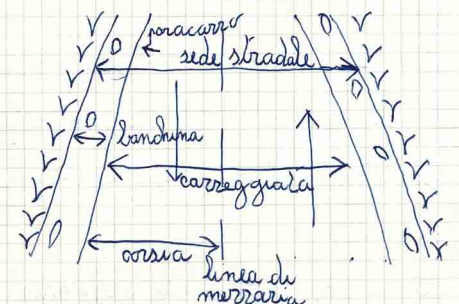 paracarro
sede stradale
banchina
carreggiata
corsia
linea di
mezzaria